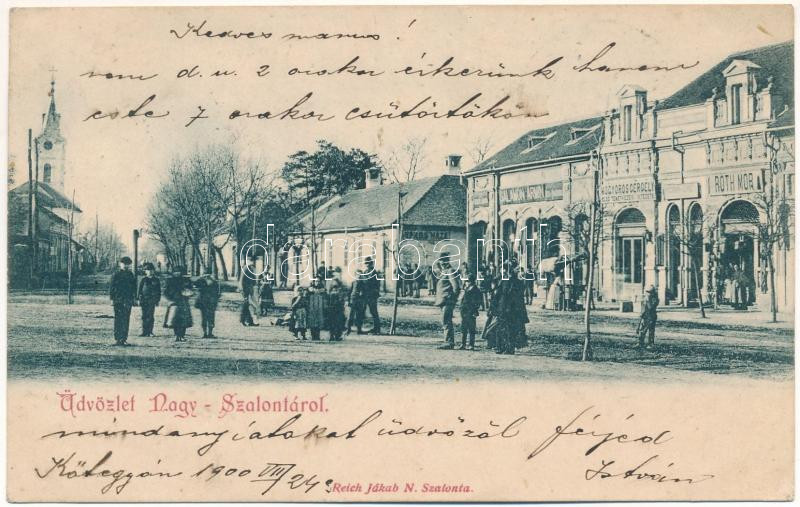 Kedves mamus!
nem d. u. 2 orakor érkezünk hanem
este 7 orakor csütörtökön
RÓTH MÓR
darabanth
Üdvözlet Nagy-Szalontáról.
mindanyiatokat üdvözöl férjed
Kötegyán 1900 VIII/24 István
Reich Jákab N. Szalonta.